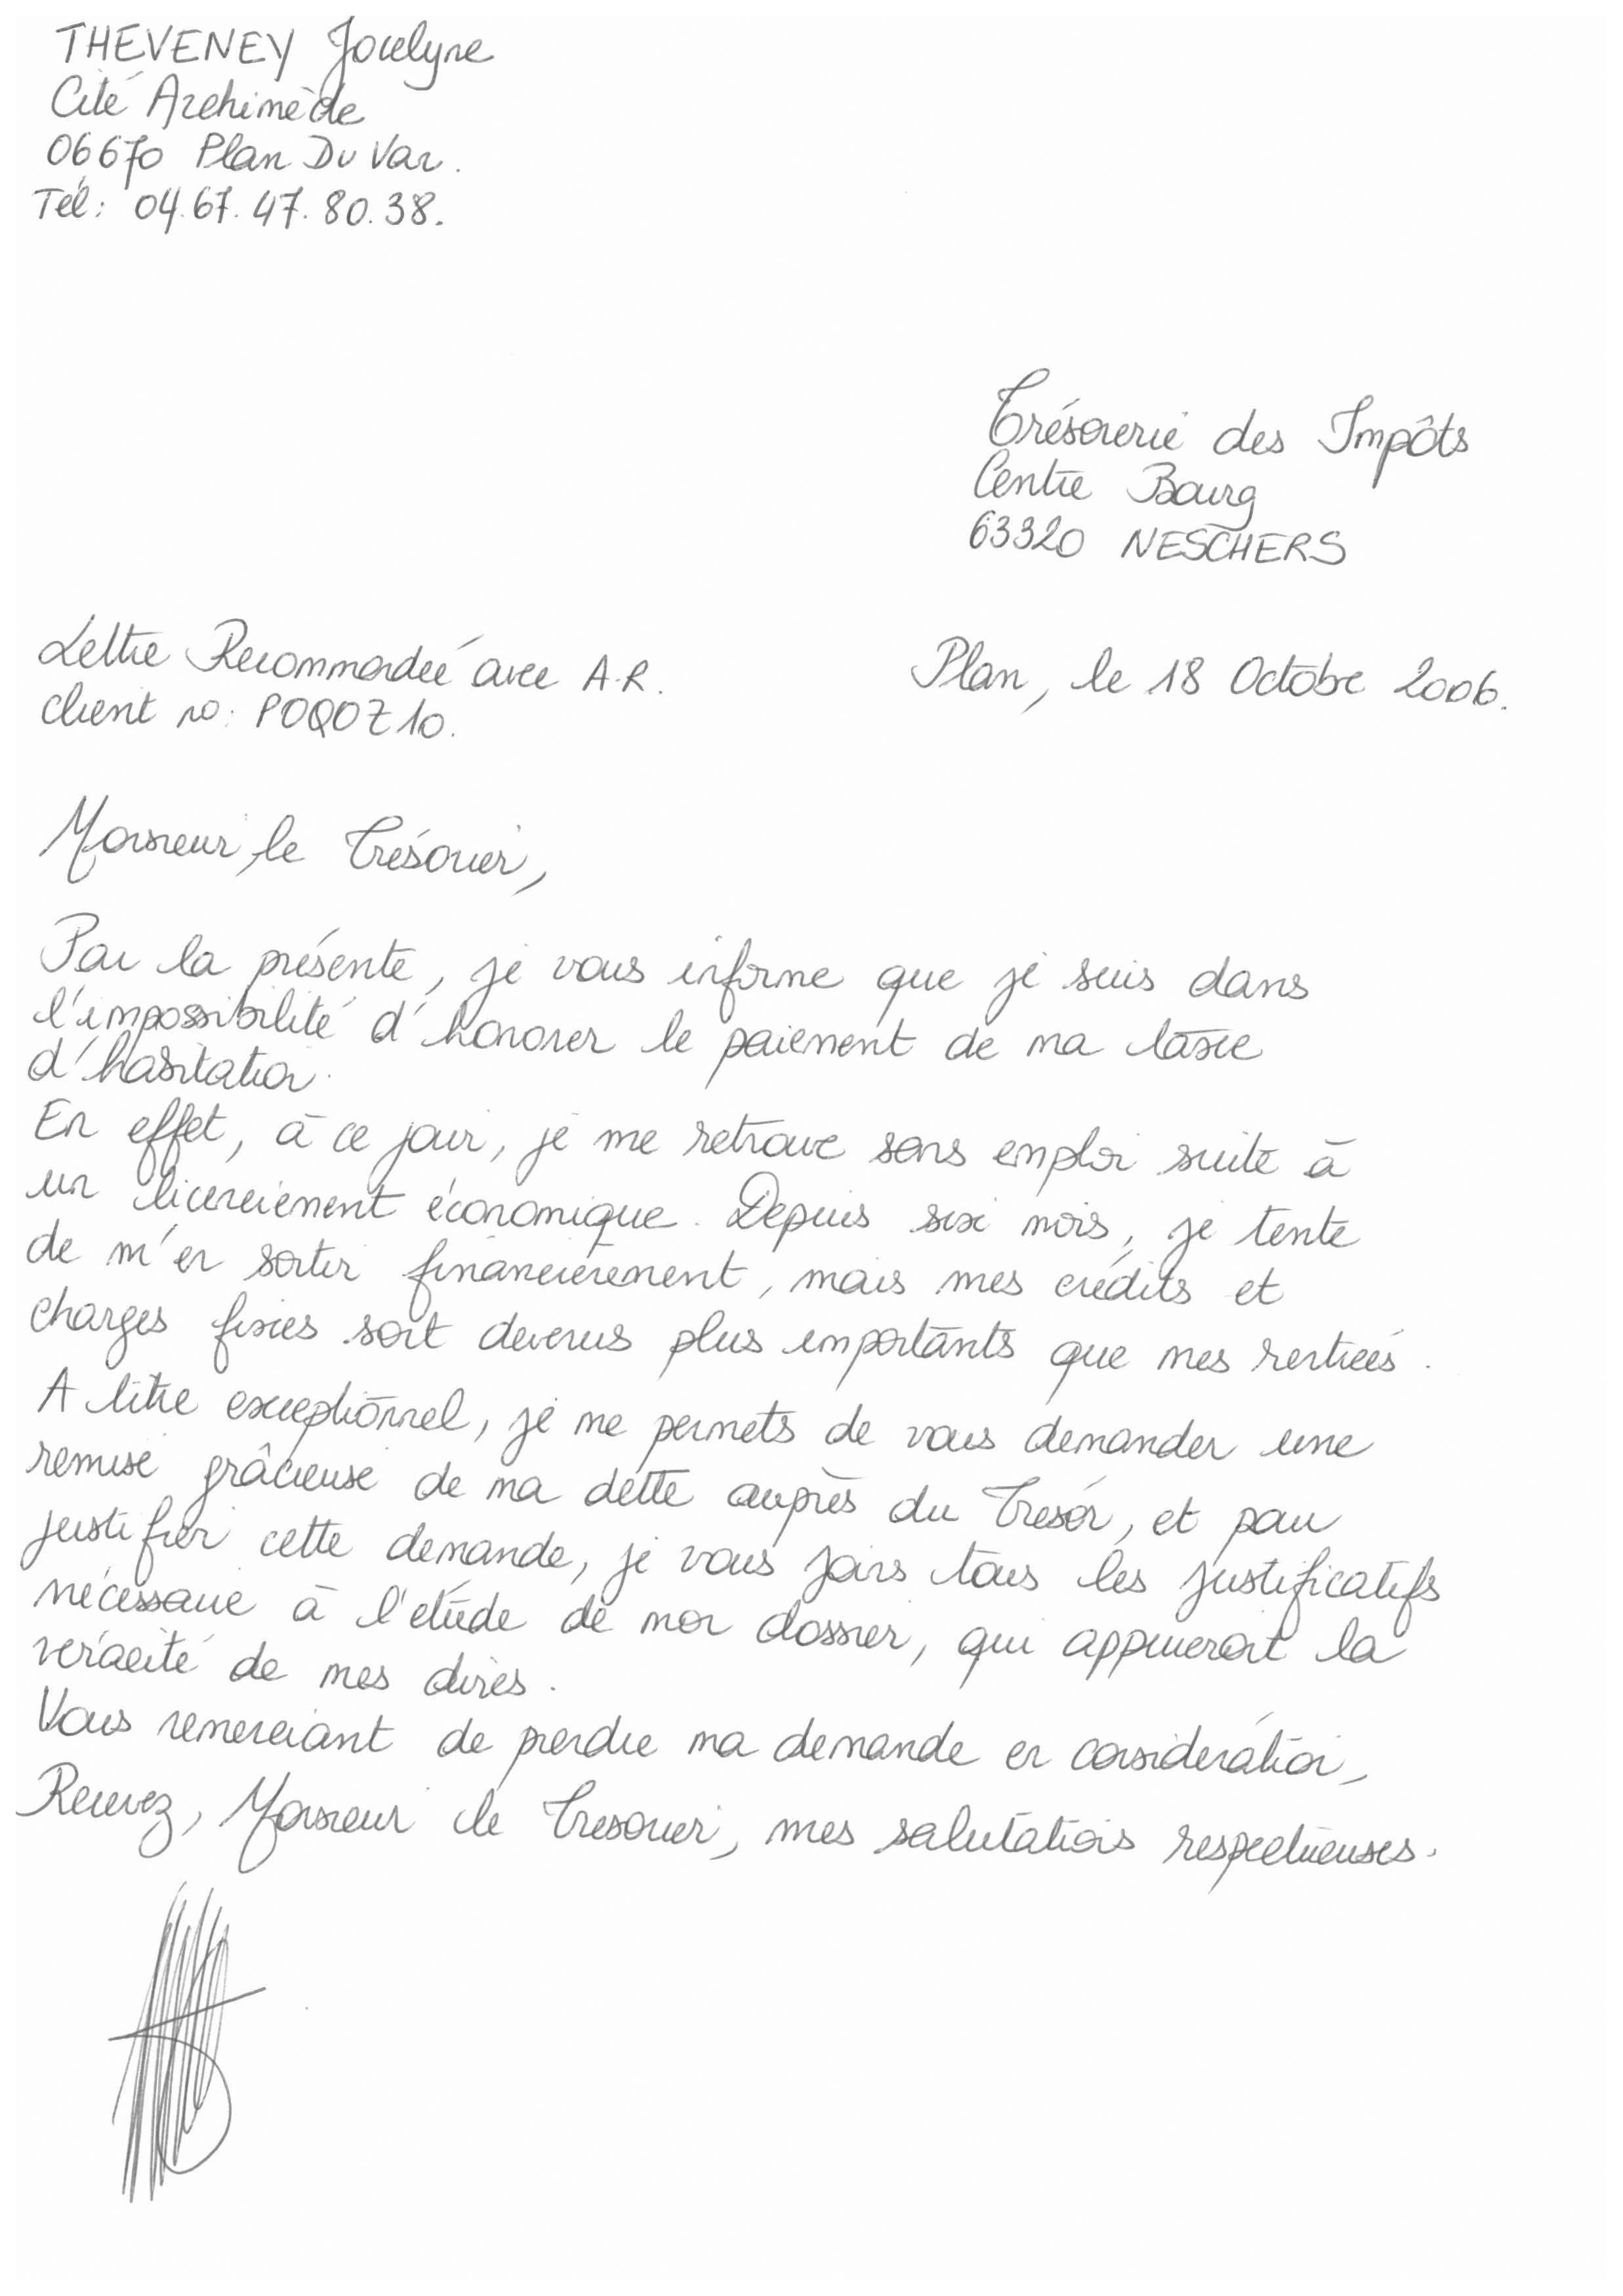 THEVENEY Jocelyne
Cité Archimède
06670 Plan Du Var.
Tél: 04.67.47.80.38.
Trésorerie des Impôts
Centre Bourg
63320 NESCHERS
Lettre Recommandée avec A.R.
Client no: POQOZ10.
Plan, le 18 Octobre 2006.
Monsieur le Trésorier,
Par la présente, je vous informe que je suis dans
l'impossibilité d'honorer le paiement de ma taxe
d'habitation.
En effet, à ce jour, je me retrouve sans emploi suite à
un licenciement économique. Depuis six mois, je tente
de m'en sortir financièrement, mais mes crédits et
charges fixes sont devenus plus importants que mes rentrées.
A titre exceptionnel, je me permets de vous demander une
remise grâcieuse de ma dette auprès du Trésor, et pour
justifier cette demande, je vous joins tous les justificatifs
nécessaire à l'étude de mon dossier, qui appuieront la
véracité de mes dires.
Vous remerciant de prendre ma demande en considération,
Recevez, Monsieur le Trésorier, mes salutations respectueuses.